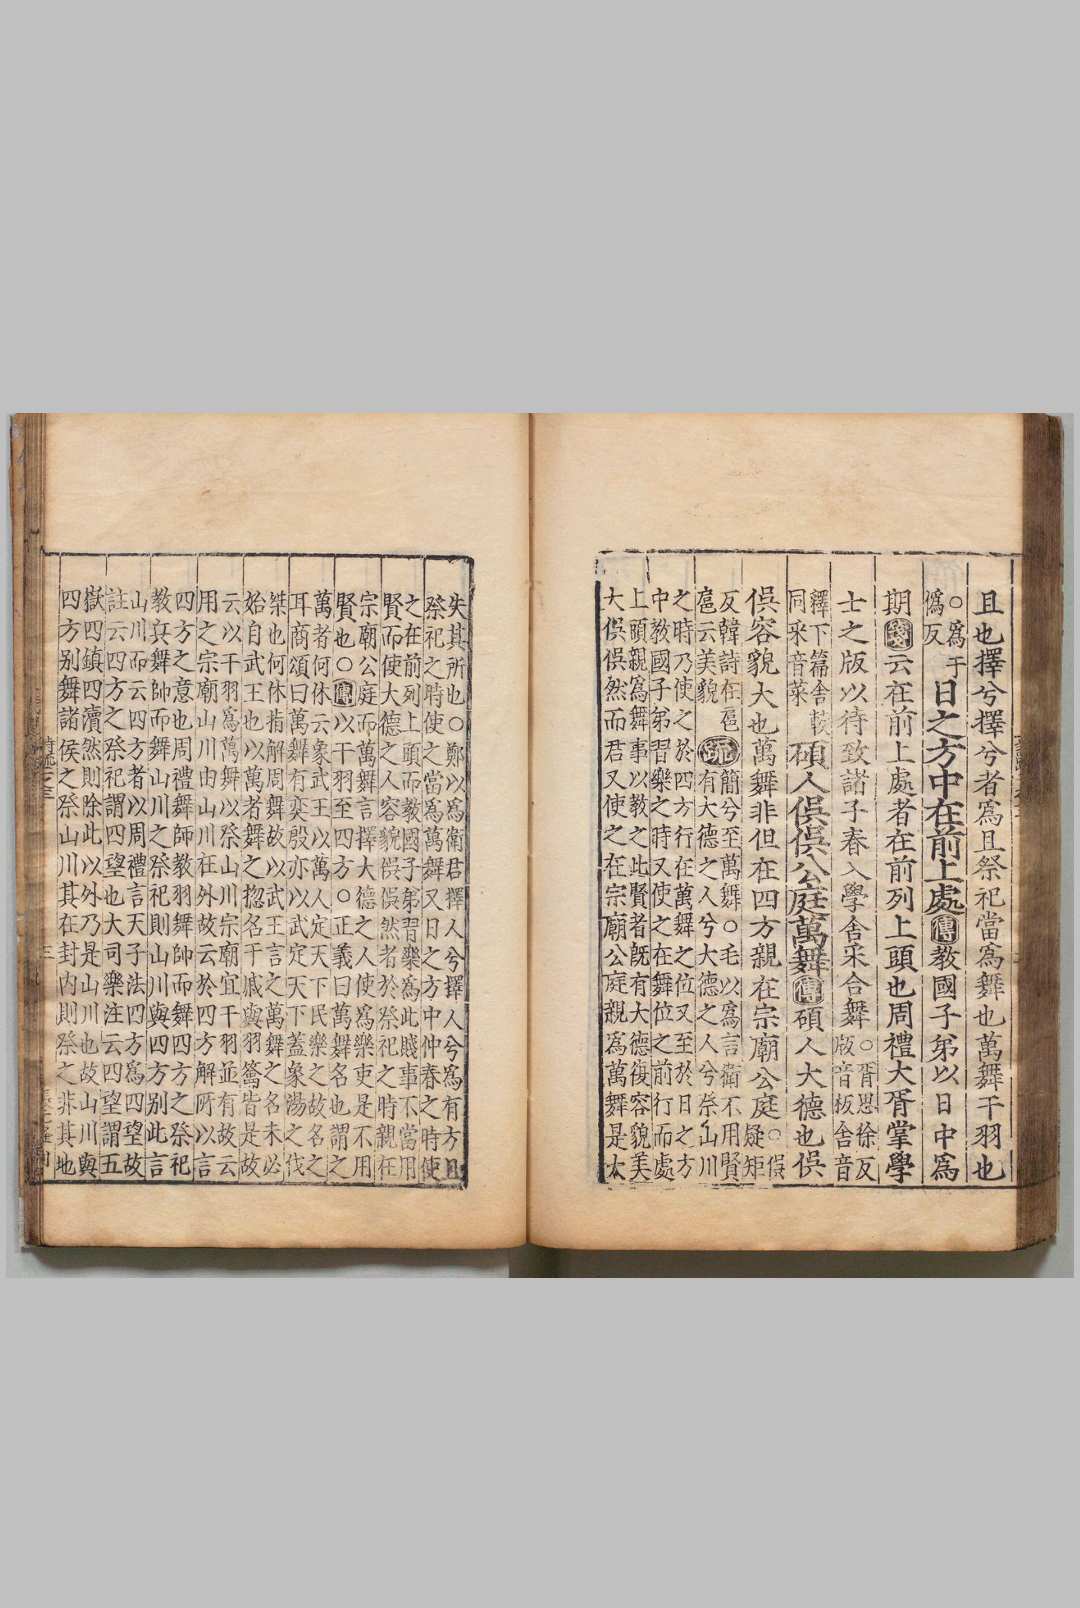 且也擇兮擇兮者爲且祭祀當爲舞也萬舞干羽也
○爲于
僞反
日之方中在前上處傳教國子弟以日中爲
期箋云在前上處者在前列上頭也周禮大胥掌學
士之版以待致諸子春入學舍采合舞
○胥思徐反
版音板舍音
釋下篇舍軷
同采音菜
碩人俁俁公庭萬舞傳碩人大德也俁
俁容貌大也萬舞非但在四方親在宗廟公庭
○俁
疑矩
反韓詩在扈
扈云美貌
疏
簡兮至萬舞○毛以爲言衛不用賢
有大德之人兮大德之人兮祭山川
之時乃使之於四方行在萬舞之位又至於日之方
中教國子弟習樂之時又使之在舞位之前行而處
上頭親爲舞事以教之此賢者旣有大德復容貌美
大俁俁然而君又使之在宗廟公庭親爲萬舞是大
失其所也○鄭以爲衛君擇人兮擇人兮爲有方且
祭祀之時使之當爲萬舞又日之方中仲春之時使
之在前列上頭而教國子弟習樂爲此賤事不當用
賢而使大德之人容貌俁俁然者於祭祀之時親在
宗廟公庭而萬舞言擇大德之人使爲樂吏是不用
賢也○傳以干羽至四方○正義曰萬舞名也謂之
萬者何休云象武王以萬人定天下民樂之故名之
耳商頌曰萬舞有奕殷亦以武定天下蓋象湯之伐
桀也何休指解周舞故以武王言之萬舞之名未必
始自武王也以萬者舞之揔名干戚與羽籥皆是故
云以干羽爲萬舞以祭山川宗廟宜干羽並有故云
用之宗廟山川由山川在外故云於四方解所以言
四方之意也周禮舞師教羽舞帥而舞四方之祭祀
教兵舞帥而舞山川之祭祀則山川與四方别此言
山川而云四方者以周禮言天子法四方爲四望故
註云四方之祭祀謂四望也大司樂注云四望謂五
嶽四鎮四瀆然則除此以外乃是山川也故山川與
四方别舞諸侯之祭山川其在封内則祭之非其地